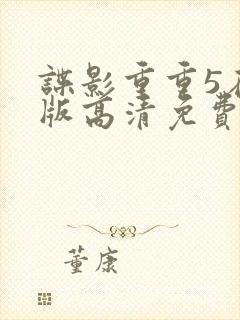 諜影重重5
版高清免費
董康